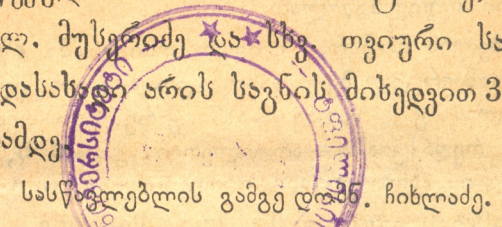 ლ. მუსერიძე და სხვ. თვიური სა
დასახადი არის საგნის მიხედვით 3
ამდე.
სასწავლებლის გამგე დომნ. ჩიხლაძე.